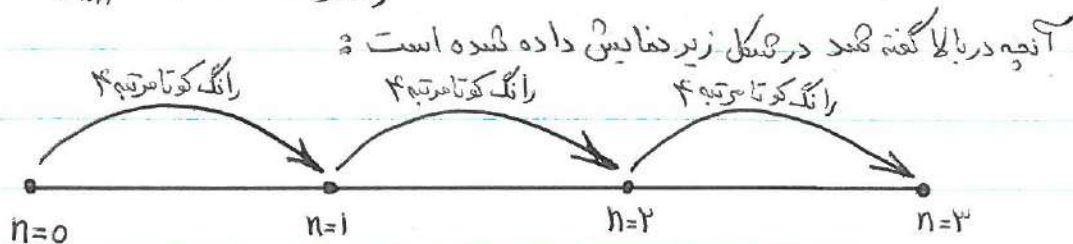 آنچه در بالا گفته شد در شکل زیر نمایش داده شده است :
رانگ کوتا مرتبه ۴ رانگ کوتا مرتبه ۴ رانگ کوتا مرتبه ۴
n=0 n=۱ n=۲ n=۳